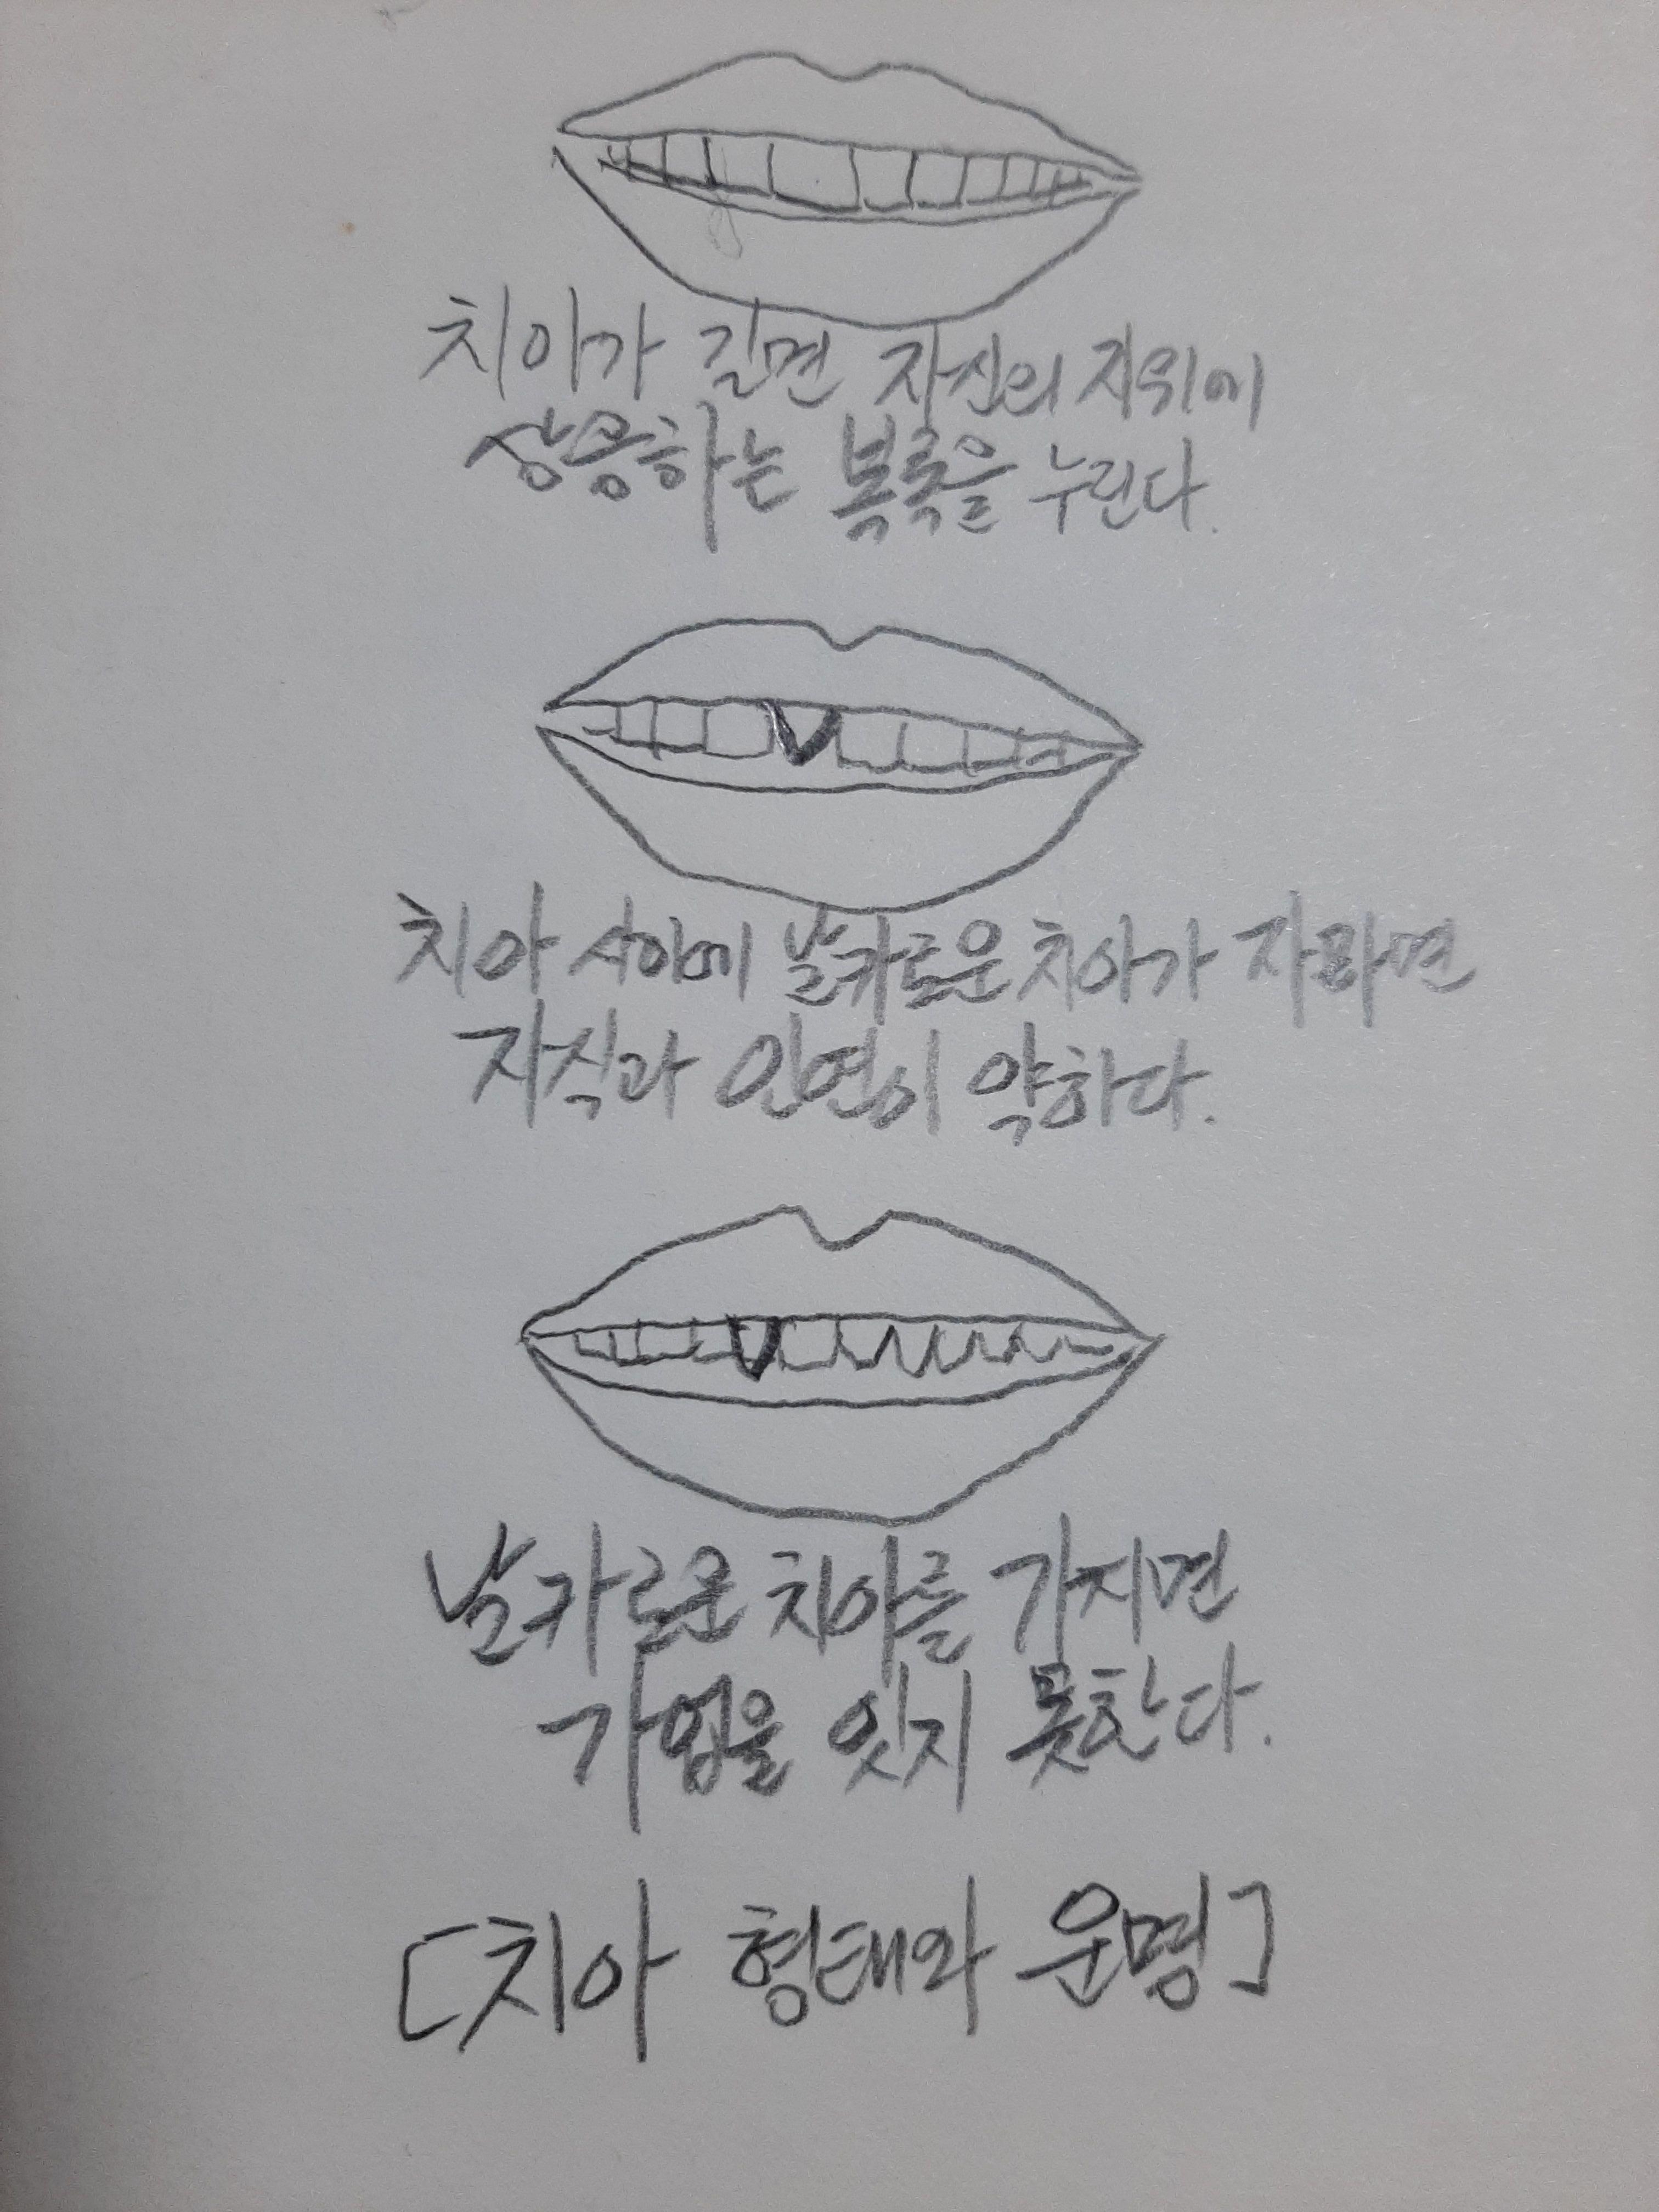 치아가 길면 자신의 지위에
상응하는 복록을 누린다.
치아 사이에 날카로운 치아가 자라면
자식과 인연이 약하다.
날카로운 치아를 가지면
가업을 잇지 못한다.
[치아 형태와 운명]